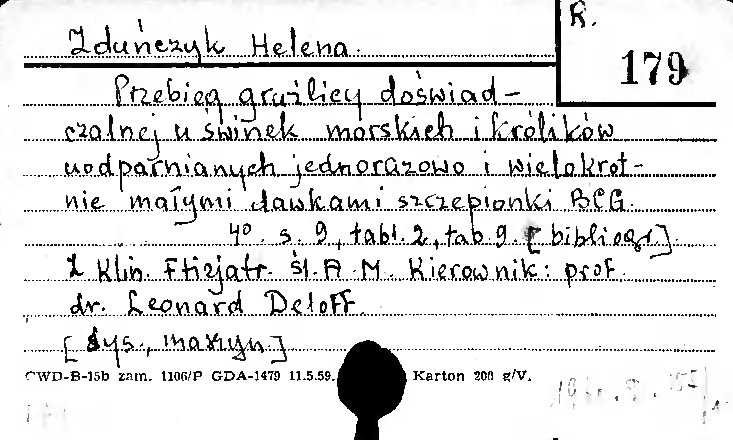 R.
179
Zduńczyk Helena.
Przebieg gruźlicy doświad-
czalnej u świnek morskich i królików
uodparnianych jednorazowo i wielokrot-
nie małymi dawkami szczepionki BCG.
4°. s. 9, tabl. 2, tab 9. [bibliogr.]
Z Klin. Ftizjatr. Śl. A. M. Kierownik: prof.
dr. Leonard Deloff.
[dys., maszyn]
CWD-B-15b zam. 1106/P GDA-1479 11.5.59. Karton 200 g/V.